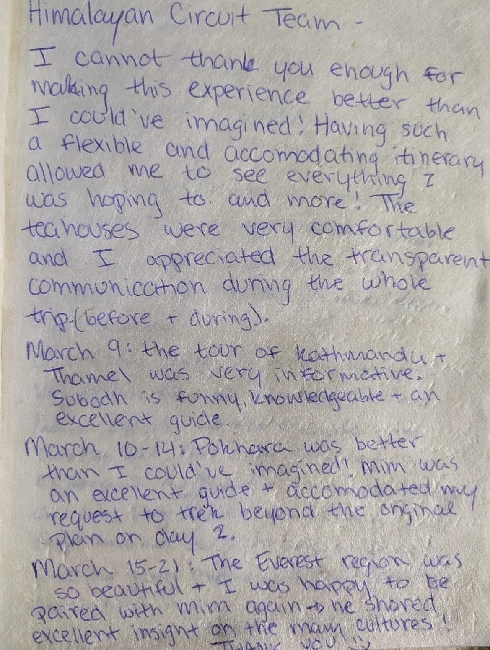 Himalayan Circuit Team -
I cannot thank you enough for
making this experience better than
I could've imagined! Having such
a flexible and accomodating itinerary
allowed me to see everything I
was hoping to and more! The
teahouses were very comfortable
and I appreciated the transparent
communication during the whole
trip (before + during).
March 9: the tour of Kathmandu +
Thamel was very informative.
Subodh is funny, knowledgeable + an
excellent guide
March 10-14: Pokhara was better
than I could've imagined! Mim was
an excellent guide + accomodated my
request to trek beyond the original
plan on day 2.
March 15-21: The Everest region was
so beautiful + I was happy to be
paired with mim again → he shared
excellent insight on the many cultures!
Thank you :)